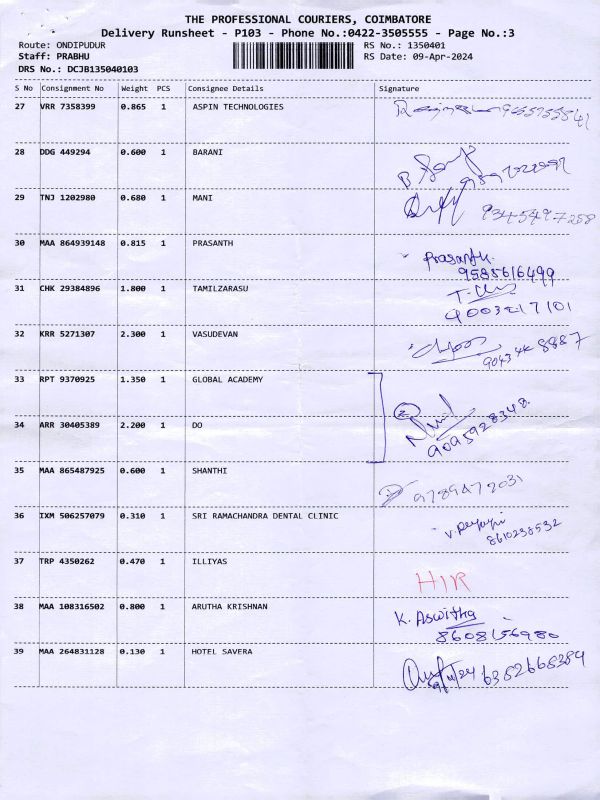 THE PROFESSIONAL COURIERS, COIMBATORE
Delivery Runsheet - P103 - Phone No.:0422-3505555 - Page No.:3
Route: ONDIPUDUR RS No.: 1350401
Staff: PRABHU RS Date: 09-Apr-2024
DRS No.: DCJB135040103
S No Consignment No Weight PCS Consignee Details Signature
27 VRR 7358399 0.865 1 ASPIN TECHNOLOGIES
28 DDG 449294 0.600 1 BARANI
29 TNJ 1202980 0.680 1 MANI
9345497258
30 MAA 864939148 0.815 1 PRASANTH Prasanth.
9585616499
31 CHK 29384896 1.800 1 TAMILZARASU
9003217101
32 KRR 5271307 2.300 1 VASUDEVAN
33 RPT 9370925 1.350 1 GLOBAL ACADEMY
2
34 ARR 30405389 2.200 1 DO
9095928348.
35 MAA 865487925 0.600 1 SHANTHI
9789472031
36 IXM 506257079 0.310 1 SRI RAMACHANDRA DENTAL CLINIC
8610238532
37 TRP 4350262 0.470 1 ILLIYAS
HIR
38 MAA 108316502 0.800 1 ARUTHA KRISHNAN K. Aswitha
8608156980
39 MAA 264831128 0.130 1 HOTEL SAVERA
6382668384